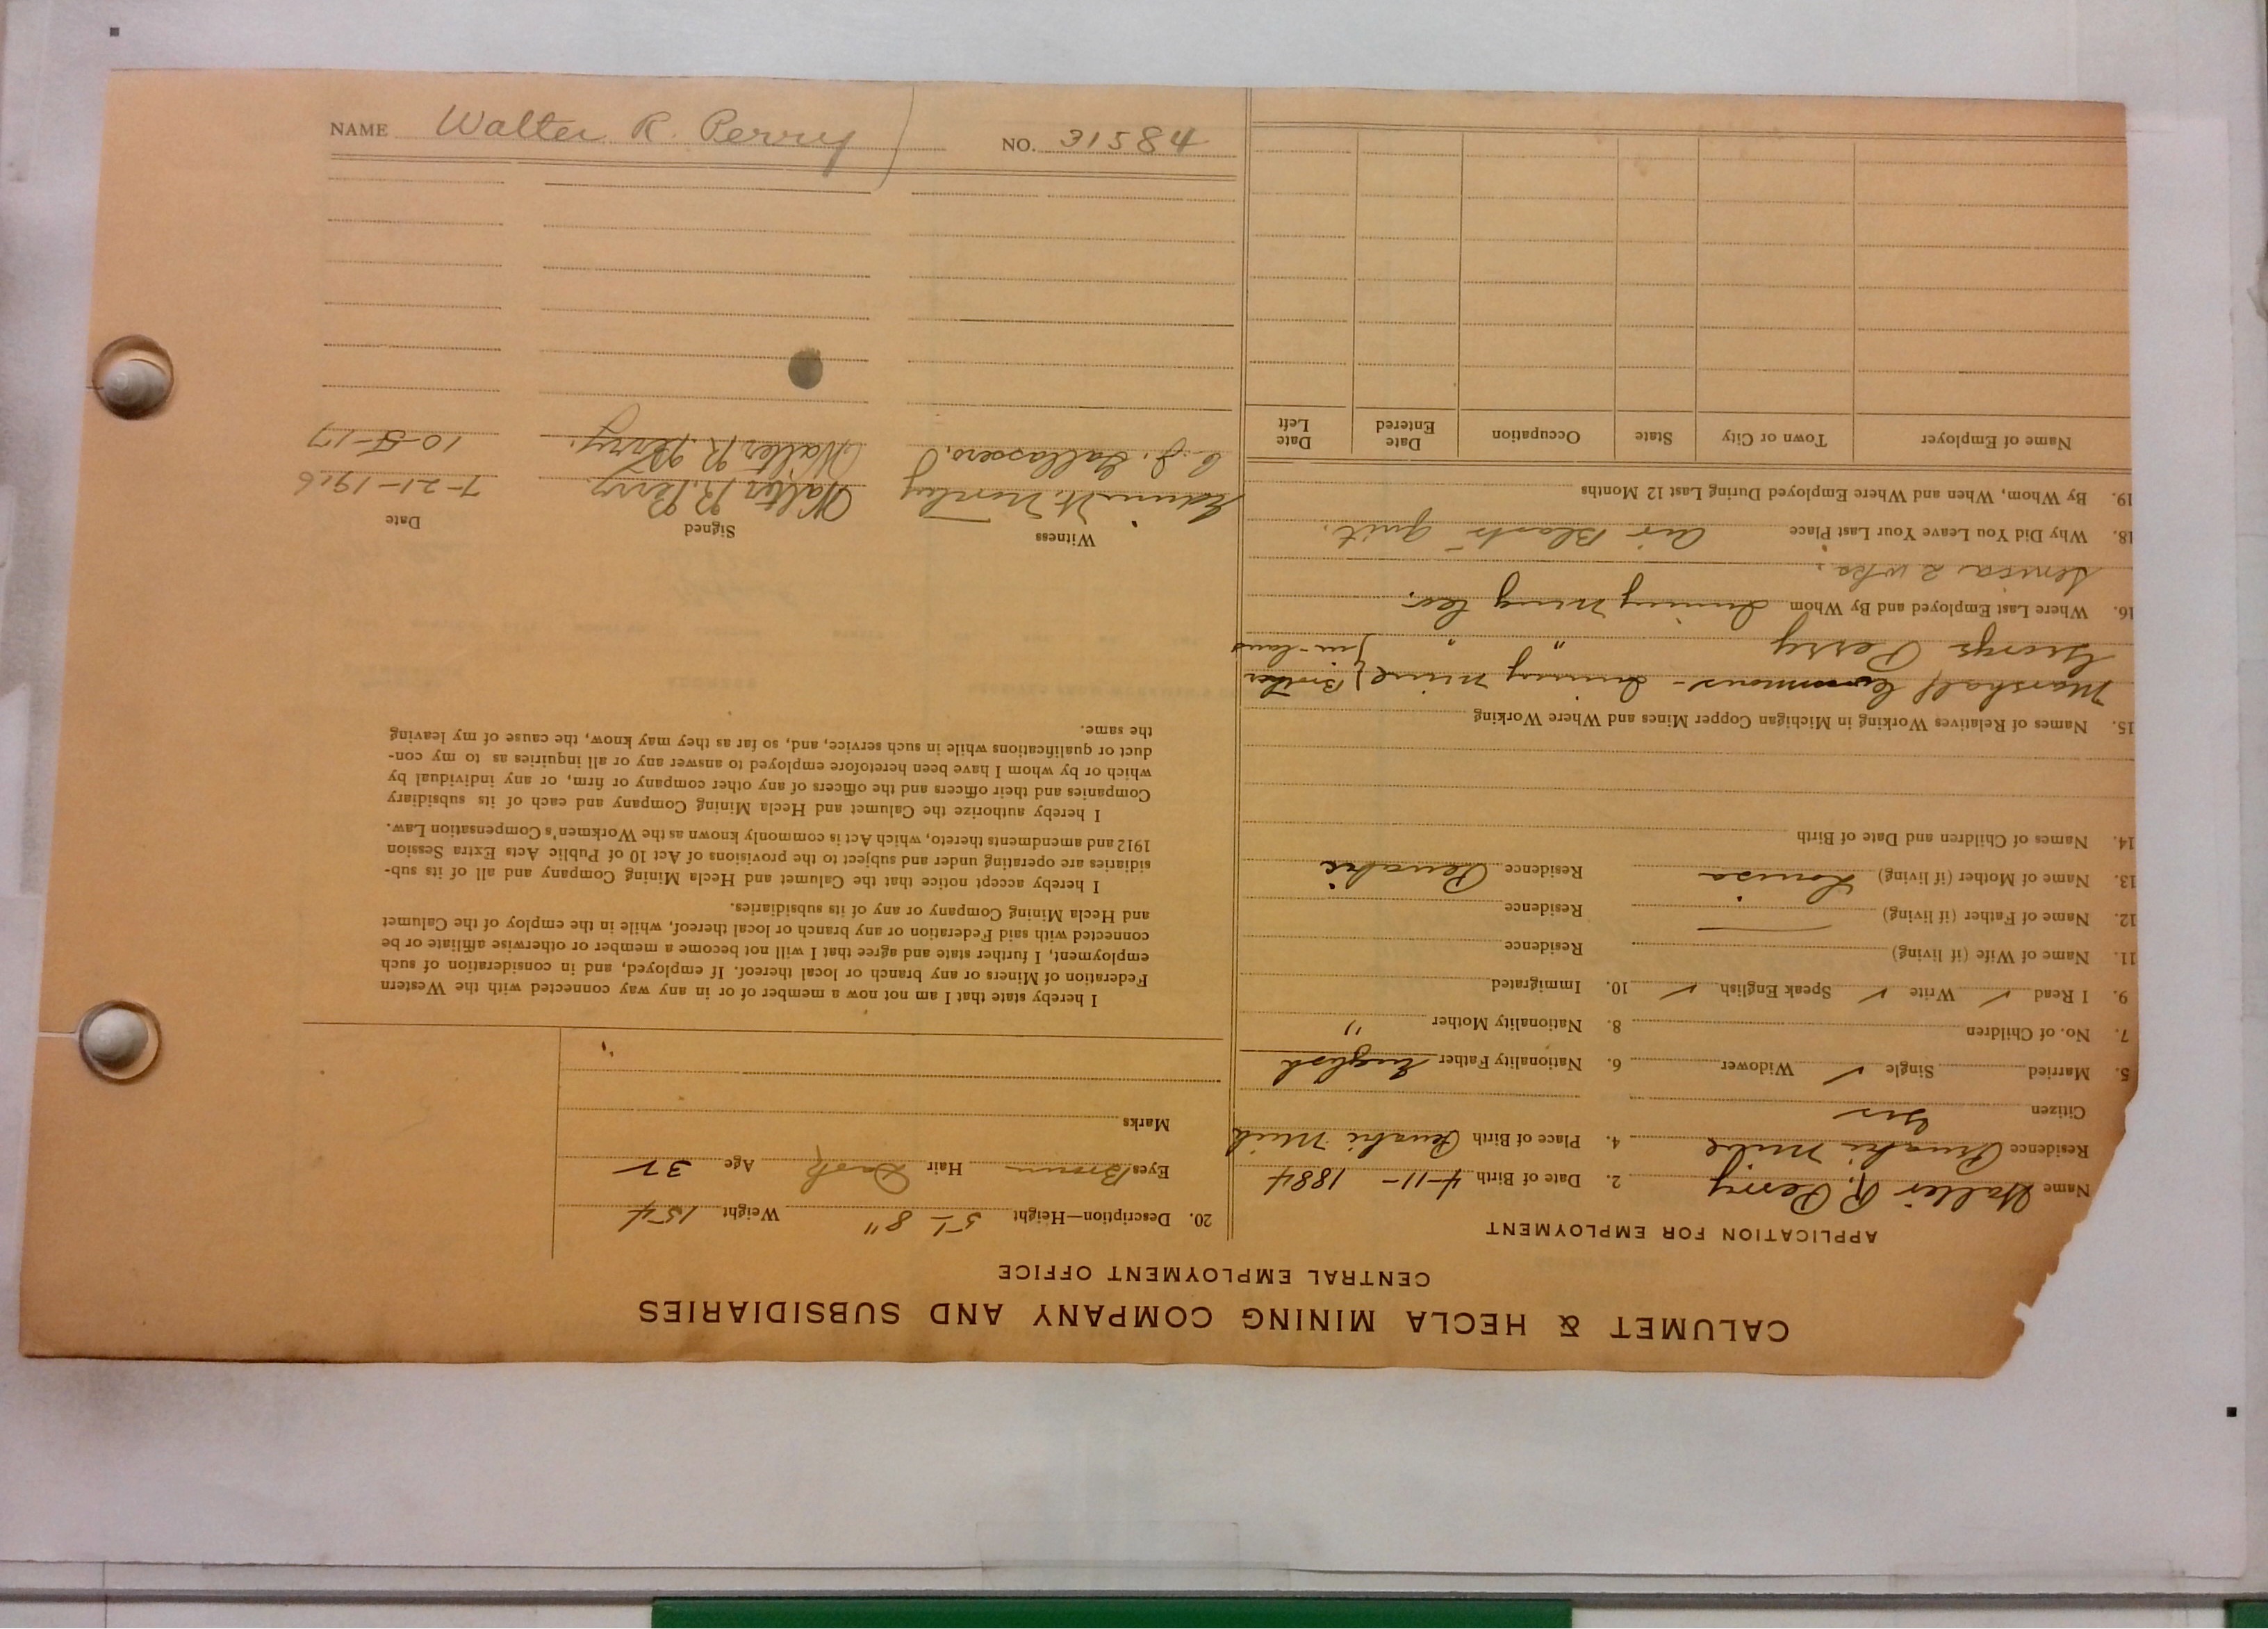 NAME Walter R. Perry NO. 31584
CALUMET & HECLA MINING COMPANY AND SUBSIDIARIES
CENTRAL EMPLOYMENT OFFICE
APPLICATION FOR EMPLOYMENT
Name Walter R. Perry 2. Date of Birth 4-11-1884
Residence Quincy 4. Place of Birth Mich
Citizen yes
5. Married Single ✓ Widower 6. Nationality Father English
7. No. of Children 8. Nationality Mother "
9. I Read ✓ Write ✓ Speak English ✓ 10. Immigrated
11. Name of Wife (if living) Residence
12. Name of Father (if living) — Residence
13. Name of Mother (if living) Louisa Residence
14. Names of Children and Date of Birth
15. Names of Relatives Working in Michigan Copper Mines and Where Working
Marshall mine } Brother
George Perry " " } in-laws
16. Where Last Employed and By Whom
Seneca 2 wks.
18. Why Did You Leave Your Last Place Air Blasts - quit.
19. By Whom, When and Where Employed During Last 12 Months
Name of Employer Town or City State Occupation Date Entered Date Left
20. Description—Height 5' 8" Weight 154
Eyes Brown Hair Dark Age 32
Marks
I hereby state that I am not now a member of or in any way connected with the Western
Federation of Miners or any branch or local thereof. If employed, and in consideration of such
employment, I further state and agree that I will not become a member or otherwise affiliate or be
connected with said Federation or any branch or local thereof, while in the employ of the Calumet
and Hecla Mining Company or any of its subsidiaries.
I hereby accept notice that the Calumet and Hecla Mining Company and all of its sub-
sidiaries are operating under and subject to the provisions of Act 10 of Public Acts Extra Session
1912 and amendments thereto, which Act is commonly known as the Workmen's Compensation Law.
I hereby authorize the Calumet and Hecla Mining Company and each of its subsidiary
Companies and their officers and the officers of any other company or firm, or any individual by
which or by whom I have been heretofore employed to answer any or all inquiries as to my con-
duct or qualifications while in such service, and, so far as they may know, the cause of my leaving
the same.
Witness Signed Date
Walter R. Perry 7-21-1916
Walter R. Perry. 10-5-17